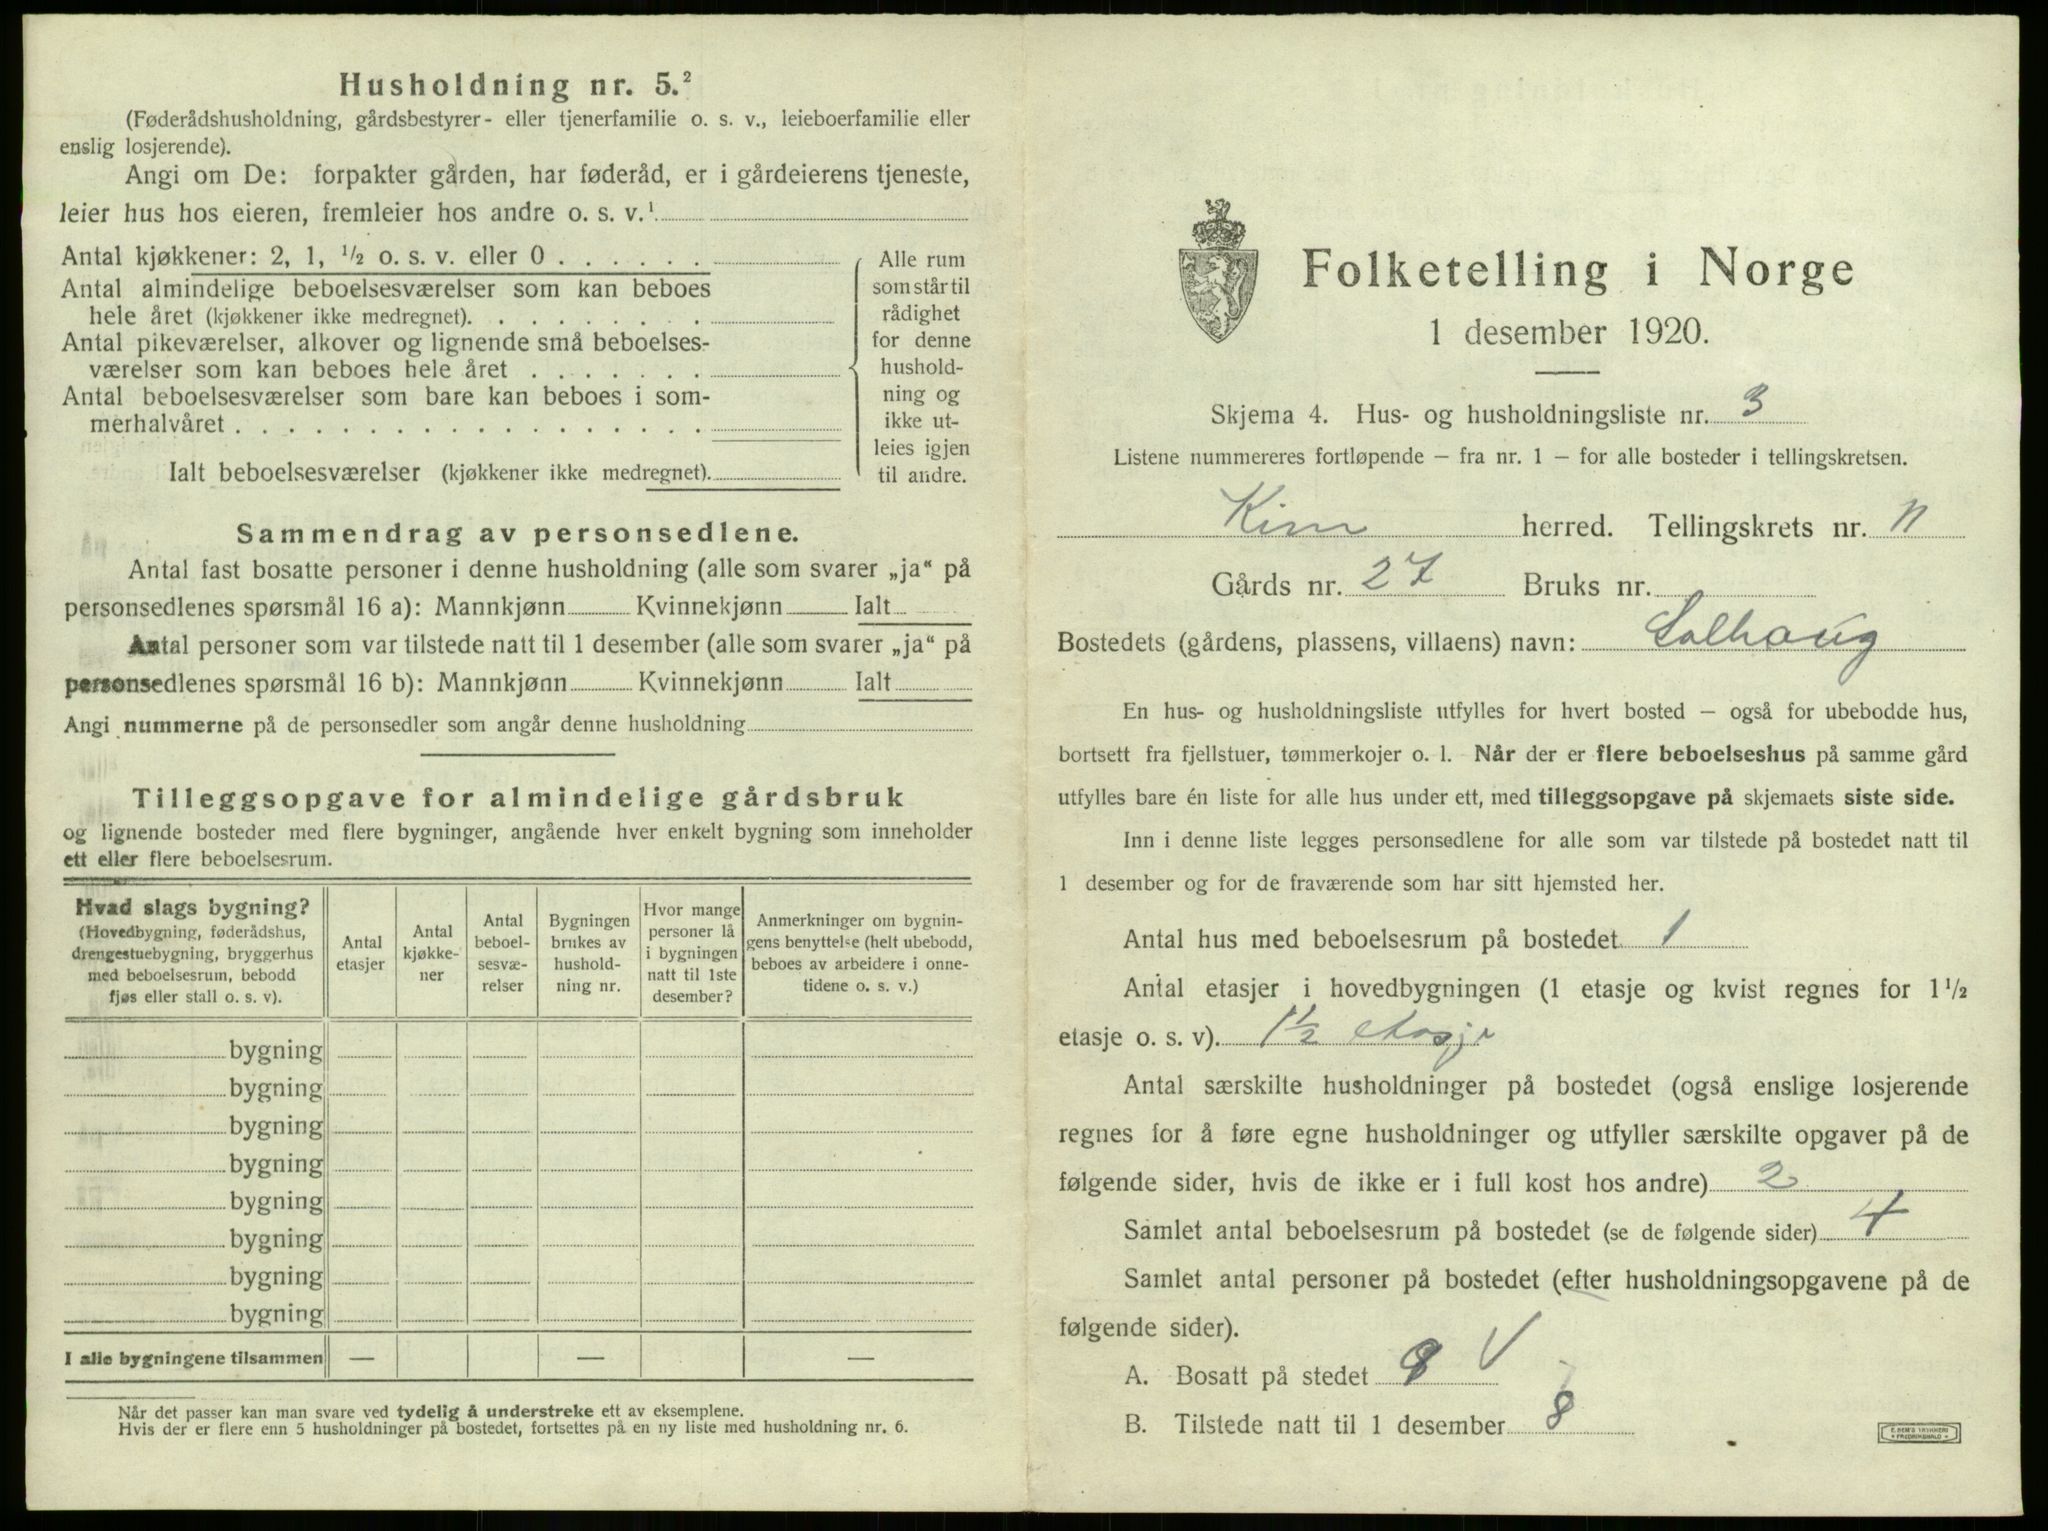 Husholdning nr. 5.²
(Føderådshusholdning, gårdsbestyrer- eller tjenerfamilie o. s. v., leieboerfamilie eller
enslig losjerende).
Angi om De: forpakter gården, har føderåd, er i gårdeierens tjeneste,
leier hus hos eieren, fremleier hos andre o. s. v.¹
Antal kjøkkener: 2, 1, ½ o. s. v. eller 0 . . . . . .
Antal almindelige beboelsesværelser som kan beboes
hele året (kjøkkener ikke medregnet). . . . . . . . .
Antal pikeværelser, alkover og lignende små beboelses-
værelser som kan beboes hele året . . . . . . .
Antal beboelsesværelser som bare kan beboes i som-
merhalvåret . . . . . . . . . . . . . . . . . .
Ialt beboelsesværelser (kjøkkener ikke medregnet).
Alle rum
som står til
rådighet
for denne
hushold-
ning og
ikke ut-
leies igjen
til andre.
Sammendrag av personsedlene.
Antal fast bosatte personer i denne husholdning (alle som svarer „ja“ på
personsedlenes spørsmål 16 a): Mannkjønn Kvinnekjønn Ialt
Antal personer som var tilstede natt til 1 desember (alle som svarer „ja“ på
personsedlenes spørsmål 16 b): Mannkjønn Kvinnekjønn Ialt
Angi nummerne på de personsedler som angår denne husholdning
Tilleggsopgave for almindelige gårdsbruk
og lignende bosteder med flere bygninger, angående hver enkelt bygning som inneholder
ett eller flere beboelsesrum.
Hvad slags bygning?
(Hovedbygning, føderådshus,
drengestuebygning, bryggerhus
med beboelsesrum, bebodd
fjøs eller stall o. s. v).
Antal
etasjer
Antal
kjøkke-
ner
Antal
beboel-
sesvæ-
relser
Bygningen
brukes av
hushold-
ning nr.
Hvor mange
personer lå
i bygningen
natt til 1ste
desember?
Anmerkninger om bygnin-
gens benyttelse (helt ubebodd,
beboes av arbeidere i onne-
tidene o. s. v.)
bygning
bygning
bygning
bygning
bygning
bygning
bygning
bygning
I alle bygningene tilsammen — — —
Når det passer kan man svare ved tydelig å understreke ett av eksemplene.
Hvis der er flere enn 5 husholdninger på bostedet, fortsettes på en ny liste med husholdning nr. 6.
Folketelling i Norge
1 desember 1920.
Skjema 4. Hus- og husholdningsliste nr. 3
Listene nummereres fortløpende — fra nr. 1 — for alle bosteder i tellingskretsen.
Kinn herred. Tellingskrets nr. 11
Gårds nr. 27 Bruks nr.
Bostedets (gårdens, plassens, villaens) navn: Solhaug
En hus- og husholdningsliste utfylles for hvert bosted — også for ubebodde hus,
bortsett fra fjellstuer, tømmerkojer o. l. Når der er flere beboelseshus på samme gård
utfylles bare én liste for alle hus under ett, med tilleggsopgave på skjemaets siste side.
Inn i denne liste legges personsedlene for alle som var tilstede på bostedet natt til
1 desember og for de fraværende som har sitt hjemsted her.
Antal hus med beboelsesrum på bostedet 1
Antal etasjer i hovedbygningen (1 etasje og kvist regnes for 1½
etasje o. s. v). 1½ etasje
Antal særskilte husholdninger på bostedet (også enslige losjerende
regnes for å føre egne husholdninger og utfyller særskilte opgaver på de
følgende sider, hvis de ikke er i full kost hos andre) 2
Samlet antal beboelsesrum på bostedet (se de følgende sider) 4
Samlet antal personer på bostedet (efter husholdningsopgavene på de
følgende sider).
A. Bosatt på stedet
B. Tilstede natt til 1 desember 8
E. SEM'S TRYKKERI
FREDRIKSHALD